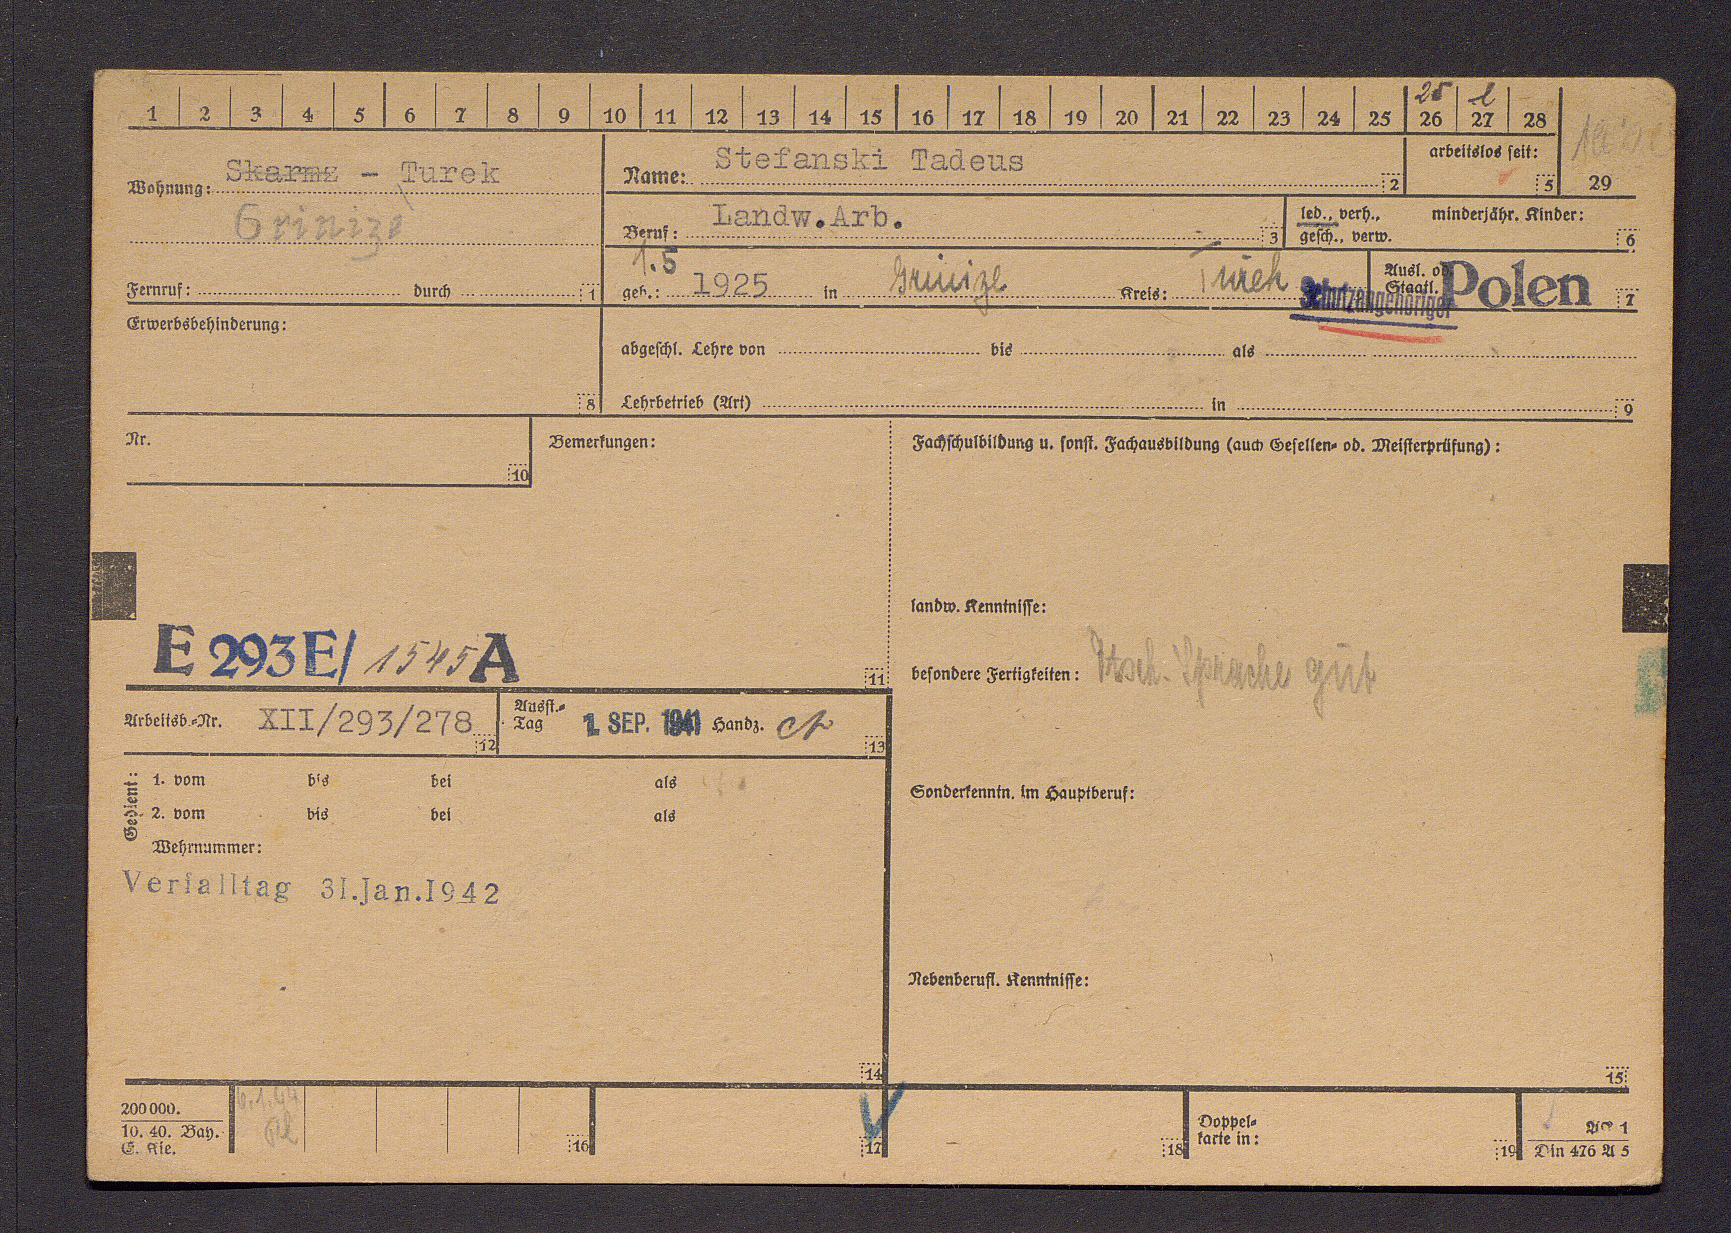 25 l
1 2 3 4 5 6 7 8 9 10 11 12 13 14 15 16 17 18 19 20 21 22 23 24 25 26 27 28
29
Wohnung: Skarmz - Turek
Grinize
Fernruf: durch 1
Name: Stefanski Tadeus 2
arbeitslos seit: 5
Beruf: Landw.Arb. 3
led., verh., gesch., verw.
minderjähr. Kinder: 6
geb.: 1.5 1925 in Grinize Kreis: Turek
Schutzangehöriger
Ausl. od. Staatl. Polen 7
Erwerbsbehinderung: 8
abgeschl. Lehre von bis als
Lehrbetrieb (Art) in 9
Nr. 10
Bemerkungen:
E 293 E/ 1545 A
11
Fachschulbildung u. sonst. Fachausbildung (auch Gesellen- od. Meisterprüfung):
landw. Kenntnisse:
besondere Fertigkeiten: Dtsch. Sprache gut
Sonderkenntn. im Hauptberuf:
Nebenberufl. Kenntnisse:
15
Arbeitsb.-Nr. XII/293/278 12
Ausst.-Tag 1. SEP. 1941 Handz. 13
Gedient:
1. vom bis bei als
2. vom bis bei als
Wehrnummer:
Verfalltag 31.Jan.1942
14
200 000.
10. 40. Bay.
E. Kie.
6.1.44
16
17
18
Doppelkarte in: 19
AP 1
Din 476 A 5